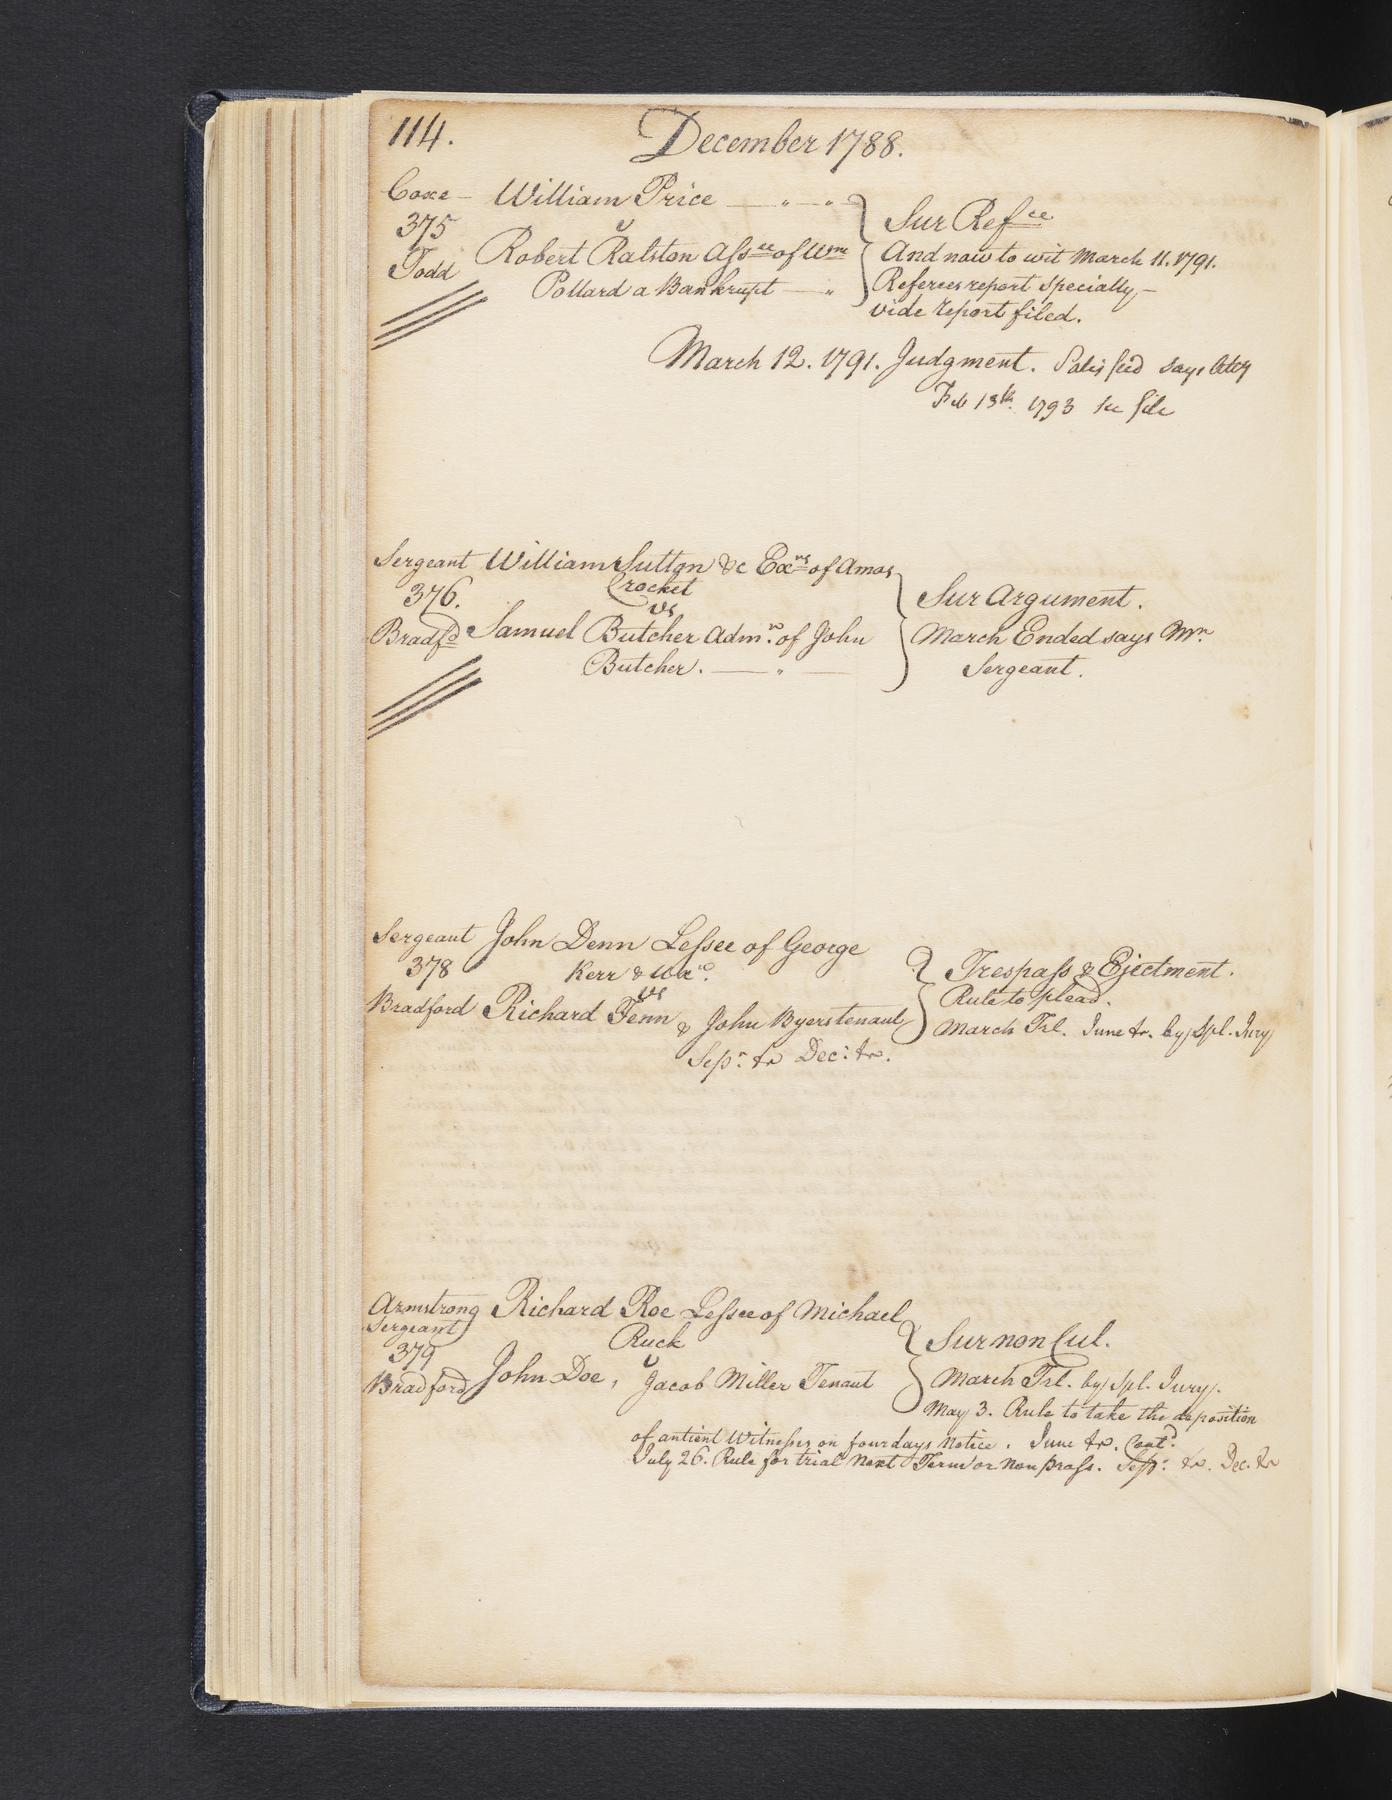 114. December 1788.
Coxe — William Price — " — "
375 v
Todd Robert Ralston Assee of Wm
Pollard a Bankrupt — "
Sur Refce
And now to wit March 11. 1791.
Referees report specially —
vide report filed.
March 12. 1791. Judgment. Satisfied says Atty
Feb 13th 1793 see file
Sergeant William Sutton &c Exrs of Amos
Crocket
376. vs
Bradfd Samuel Butcher Admr. of John
Butcher. — " —
Sur Argument.
March Ended says Mr
Sergeant.
Sergeant John Denn Lessee of George
378 Kerr & Uxr.
vs
Bradford Richard Fenn & John Byers tenant
Sepr. tr Decr. tr.
Trespass & Ejectment.
Rule to plead.
March Trl. June tr. by Spl. Jury
Armstrong Richard Roe Lessee of Michael
Sergeant Ruck
379 v
Bradford John Doe, Jacob Miller Tenant
Sur non Cul.
March Trl. by Spl. Jury.
May 3. Rule to take the deposition
of antient Witnesses on four days notice. June tr. Contd.
July 26. Rule for trial next Term or non pross. Sepr. tr. Dec. tr